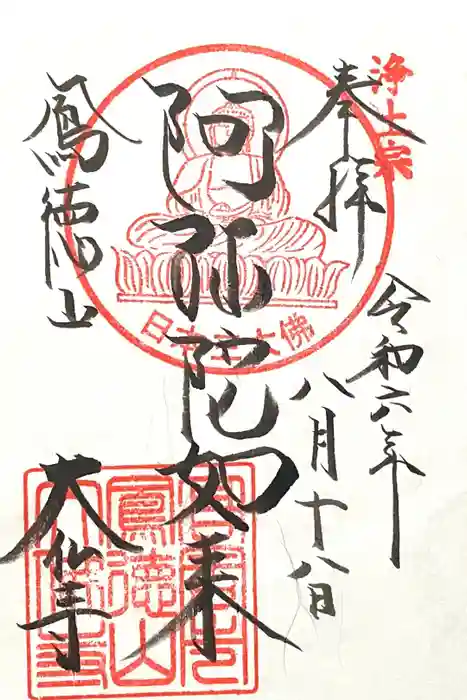 浄土宗
奉拝
令和六年
八月十八日
阿弥陀如来
鳳徳山
大仏寺